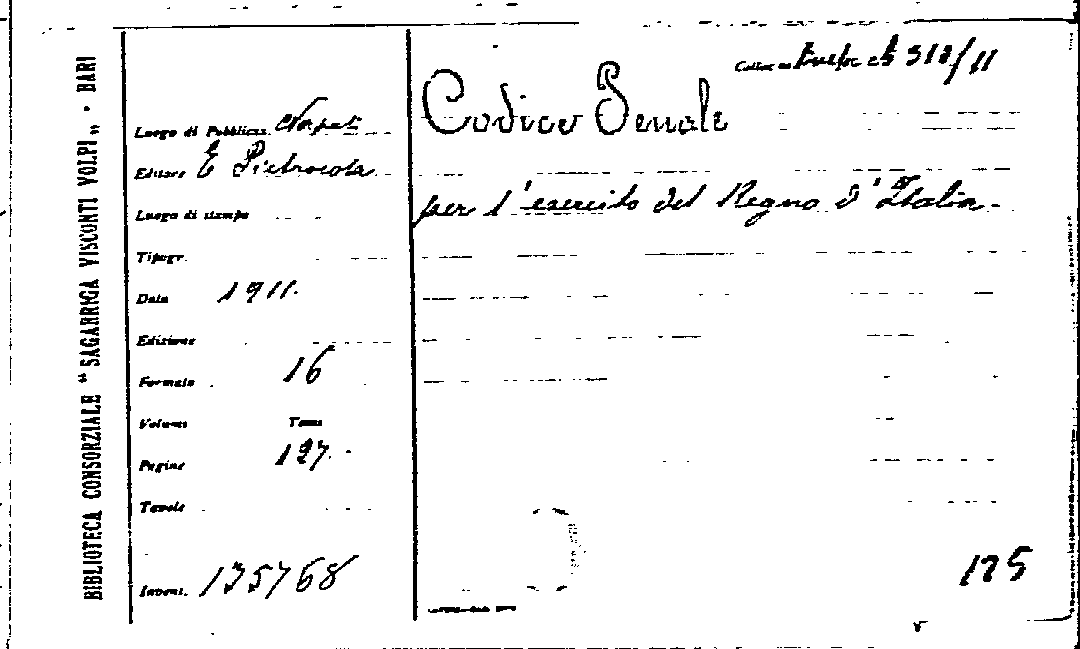 BIBLIOTECA CONSORZIALE "SAGARRIGA VISCONTI VOLPI„ - BARI
Luogo di Pubblicaz. Napoli
Editore E Pietrocola
Luogo di stampa
Tipogr.
Data 1911.
Edizione
Formato 16
Volumi Tomi
Pagine 127.
Tavole
Invent. 135768
312/11
Codice Penale
per l'esercito del Regno d'Italia.
125